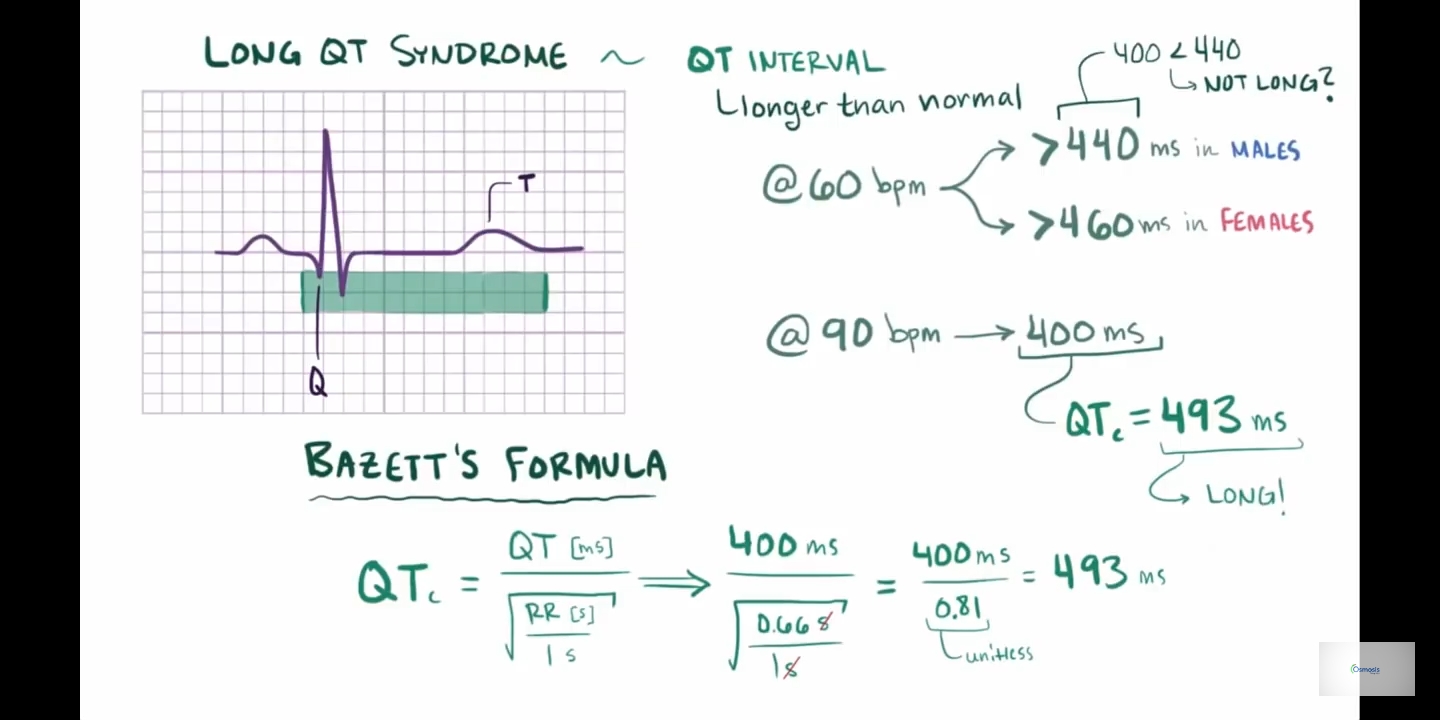 LONG QT SYNDROME ~ QT INTERVAL
Llonger than normal
400 < 440
↳ NOT LONG?
@ 60 bpm
> 440 ms in MALES
> 460 ms in FEMALES
T
Q
@ 90 bpm → 400 ms
QTc = 493 ms
→ LONG!
BAZETT'S FORMULA
QTc = QT [ms] / √(RR [s] / 1 s) ⟹ 400 ms / √(0.66 s / 1 s) = 400 ms / 0.81 = 493 ms
unitless
Osmosis